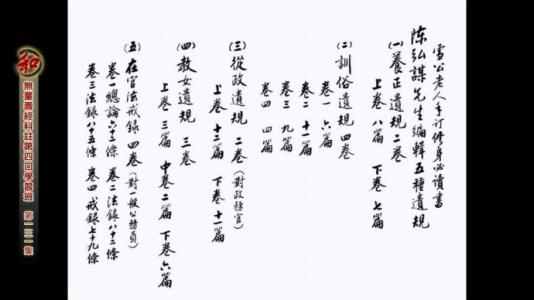 雪公老人手訂修身必讀書
陈弘謀先生編輯五種遺規
(一)養正遺規 二卷
上卷 八篇 下卷 七篇
(二)訓俗遺規 四卷
卷一 六篇
卷二 十一篇
卷三 九篇
卷四 四篇
(三)從政遺規 二卷(對政務官)
上卷 十二篇 下卷 十一篇
(四)教女遺規 三卷
上卷 三篇 中卷 二篇 下卷 六篇
(五)在官法戒錄 四卷(對一般公務員)
卷一 總論六十條 卷二 法錄八十二條
卷三 法錄八十五條 卷四 戒錄七十九條
和
無量壽經科註第四回學習班 第一三一集